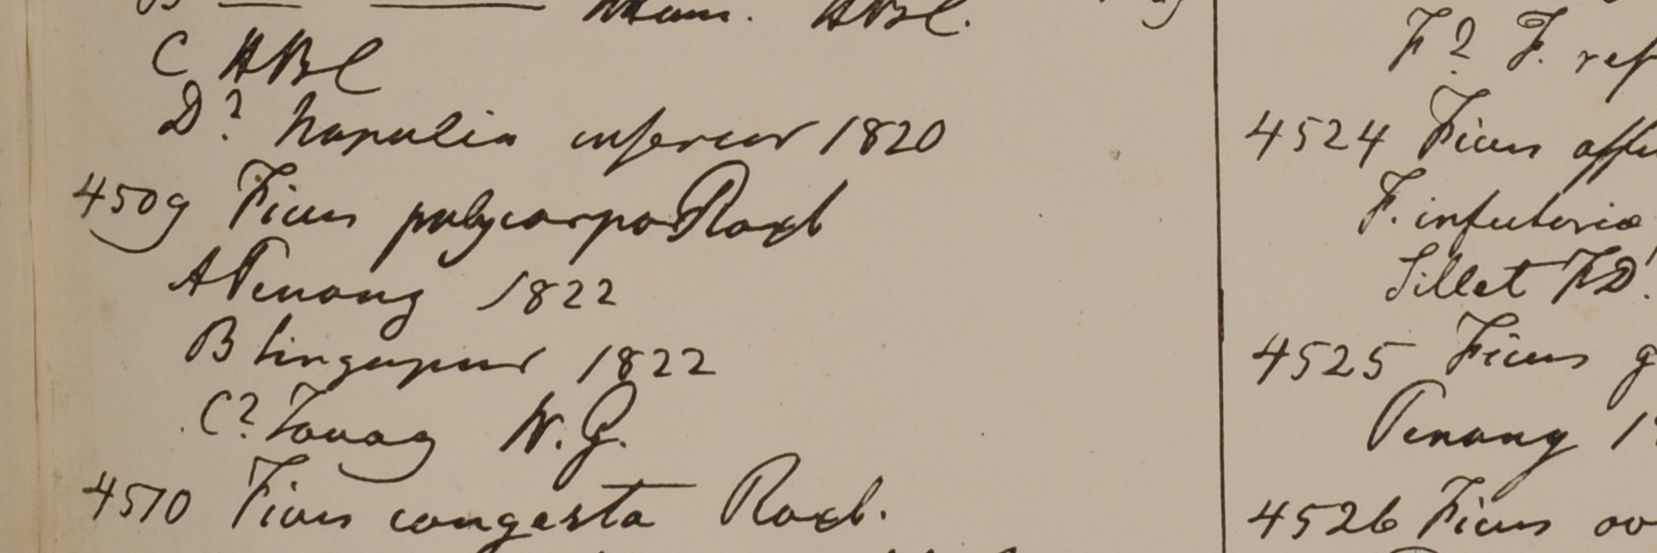 Ham. HBC.
C HBC
D? Napalia inferior 1820
4509 Ficus polycarpa Roxb
A Penang 1822
B Singapur 1822
C? Tavoy W. G.
4510 Ficus congesta Roxb.
F? F. ref
4524 Ficus affi
F. infectoria
Sillet FD.
4525 Ficus g
Penang 1
4526 Ficus ov